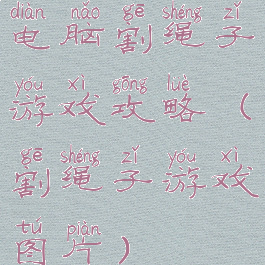 diàn nǎo gē shéng zǐ
电脑割绳子
yóu xì gōng lüè
游戏攻略（
gē shéng zǐ yóu xì
割绳子游戏
tú piàn
图片）